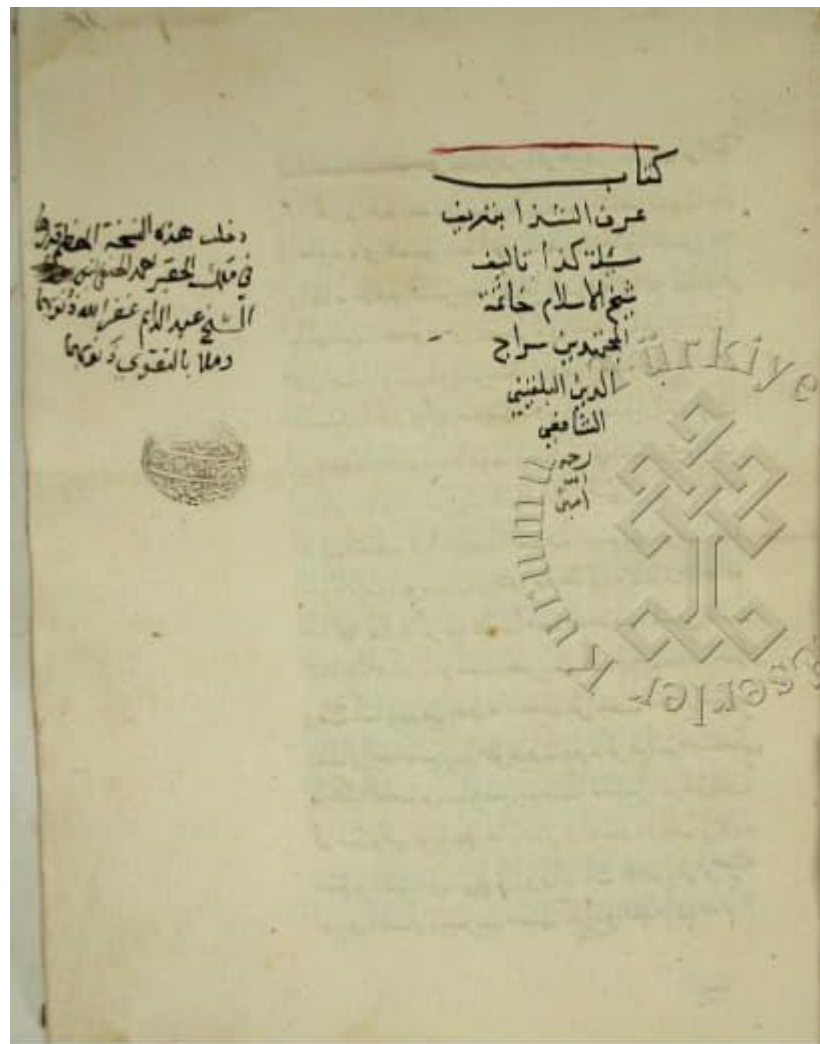 كتاب
عرف الشذا بتعريف
مسئلة كذا تاليف
شيخ الاسلام خاتمة
المجتهدين سراج
الدين البلقيني
الشافعي
رحمه
الله
آمين
دخلت هذه النسخة
في ملك الحقير
الشيخ عبد الدايم غفر الله ذنوبهما
وملا بالتقوى ذنوبهما
Türkiye
Kurumu